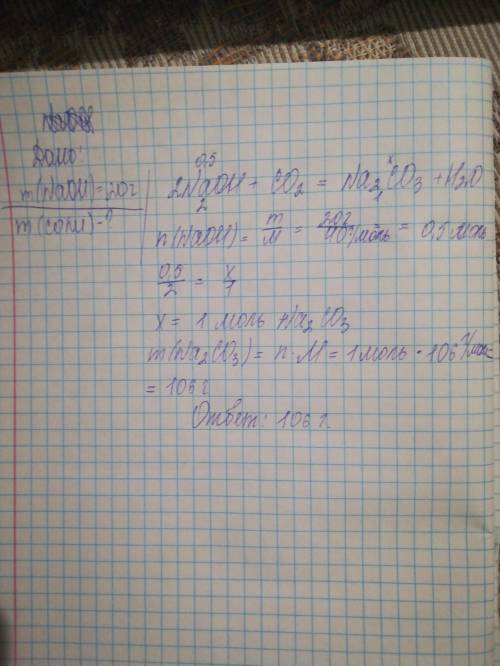 Дано:
m(NaOH)=20г
m(соли)-?
0,5 x
2NaOH + CO₂ = Na₂CO₃ + H₂O
2 1
n(NaOH) = m/M = 20г/40г/моль = 0,5 моль
0,5/2 = x/1
x = 1 моль Na₂CO₃
m(Na₂CO₃) = n·M = 1 моль · 106 г/моль =
= 106 г
Ответ: 106 г.